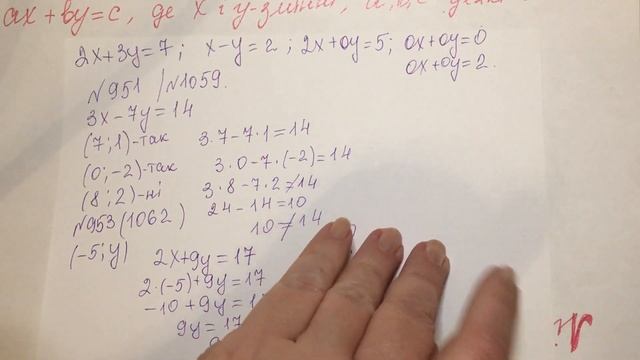 ax + by = c, де x і y - змінні, a, b, c
2x+3y=7; x-y=2; 2x+0y=5; 0x+0y=0
0x+0y=2.
№951 /№1059.
3x-7y=14
(7;1)-так 3·7-7·1=14
(0;-2)-так 3·0-7·(-2)=14
(8;2)-ні 3·8-7·2≠14
24-14=10
№953(1062) 10≠14
(-5;y) 2x+9y=17
2·(-5)+9y=17
-10+9y=1
9y=17
№